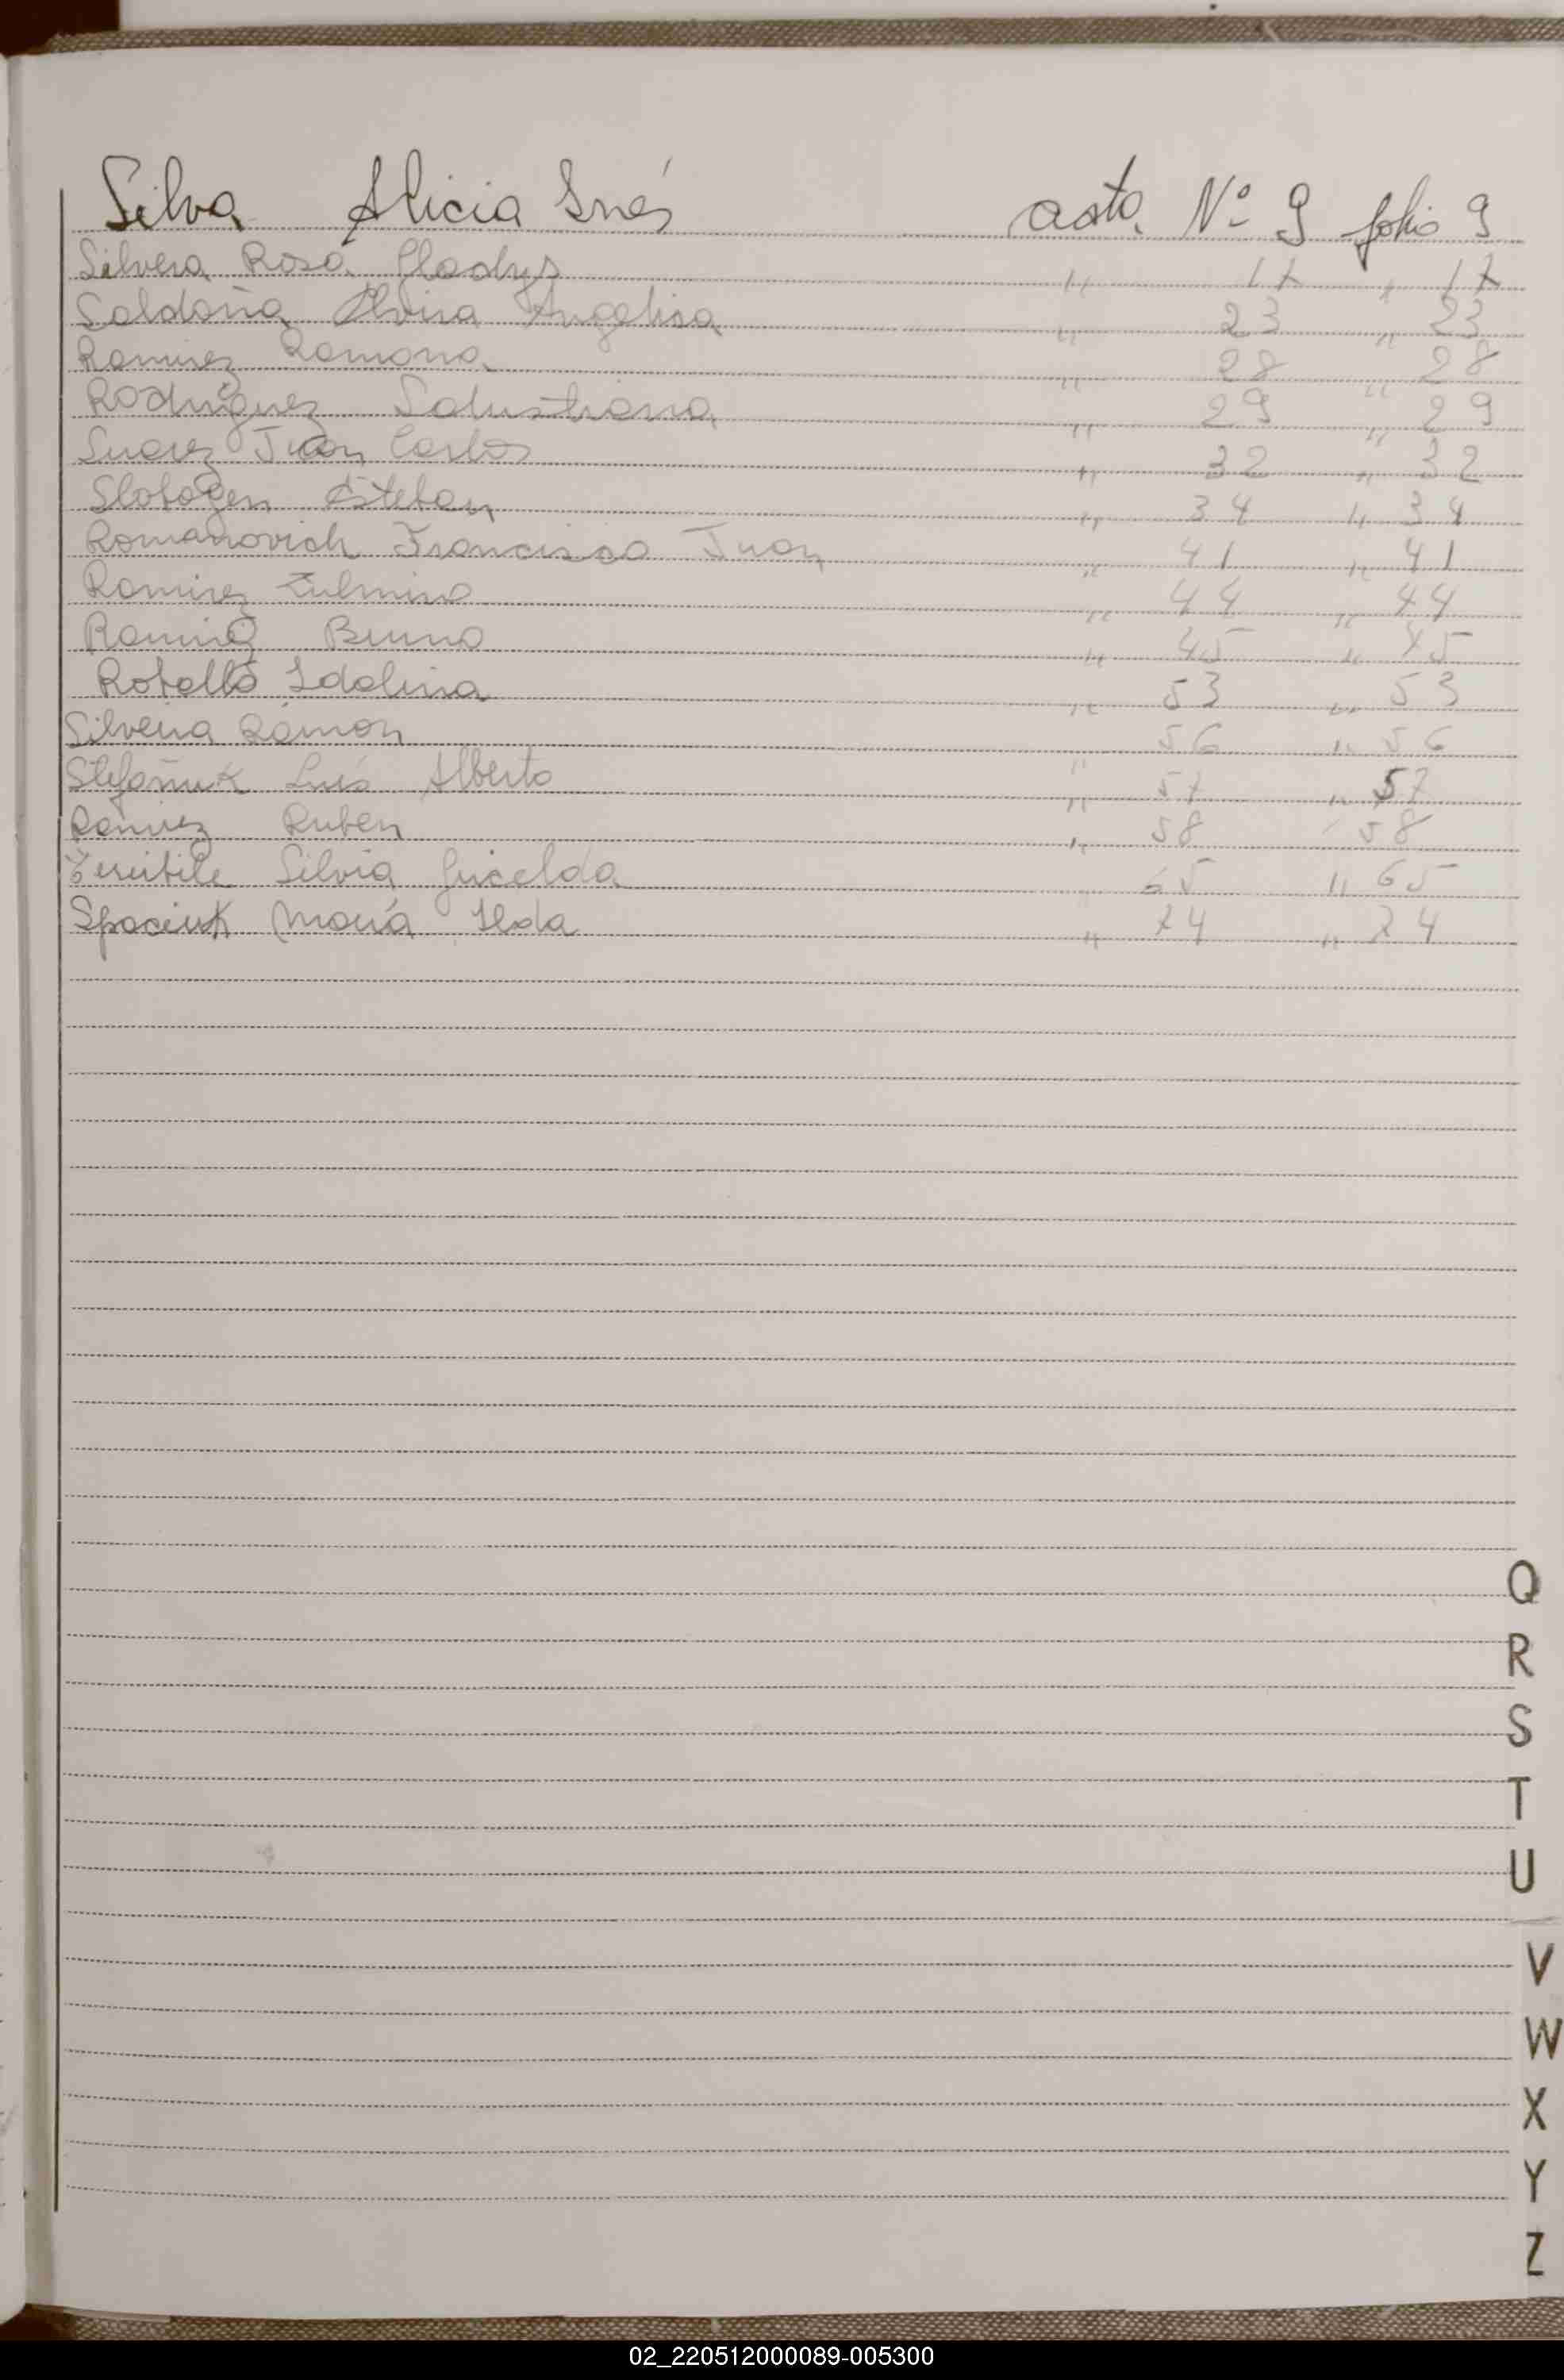 Silva Alicia Inés acta Nº 9 folio 9
Silvera Rosa Gladys " 17 " 17
Saldaña Elvira Angelica " 23 " 23
Ramirez Ramona " 28 " 28
Rodriguez Salustiana " 29 " 29
Suarez Juan Carlos " 32 " 32
Slobogen Esteban " 34 " 34
Romanovich Francisco Juan " 41 " 41
Ramirez Zulmira " 44 " 44
Ramirez Bruno " 45 " 45
Idalina " 53 " 53
Silvera Ramon " 56 " 56
Stefañuk Luis Alberto " 57 " 57
Ramirez Ruben " 58 " 58
Silvia Gricelda " 65 " 65
Spaciuk María Ilda " 74 " 74
Q
R
S
T
U
V
W
X
Y
Z
02_220512000089-005300